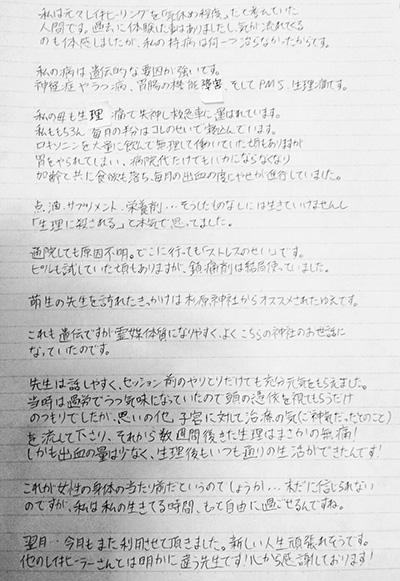 私は元々レイキヒーリングを「気休め程度」だと考えていた
人間です。過去に体験した事はありましたし、気が流れてくる
のも体感しましたが、私の持病は何一つ治らなかったからです。
私の病は遺伝的な要因が強いです。
神経症やうつ病、胃腸の機能障害、そしてPMS、生理痛です。
私の母も生理痛で失神し救急車に運ばれています。
私ももちろん毎月の半分はコレのせいで
ロキソニンを大量に飲んで無理して働いていた頃もありますが
胃をやられてしまい、病院代だけでもバカにならなくなり
加齢と共に食欲も落ち、毎月の出血の度にやせが進行していました。
点滴、サプリメント、栄養剤…そうしたものなしには生きていけませんし
「生理に殺される」と本気で思ってました。
通院しても原因不明。どこに行っても「ストレスのせい」です。
ピルも試していた頃もありますが、鎮痛剤は結局使っていました。
萌生の先生を訪れたきっかけは杉原神社からオススメされたゆえです。
これも遺伝ですが霊媒体質になりやすく、よくこちらの神社のお世話に
なっていたのです。
先生は話しやすく、セッション前のやりとりだけでも充分元気をもらえました。
当時は過労でうつ気味になっていたので頭の邪気を視てもらうだけ
のつもりでしたが、思いの他、子宮に対して治療の気(ご神気だったとのこと)
を流して下さり、それから数週間後きた生理はまさかの無痛!
しかも出血の量は少なく、生理後もいつも通りの生活ができたんです!
これが女性の身体の当たり前だというのでしょうか…未だに信じられない
のですが、私は私の生きてる時間、もって自由に過ごせるんですね。
翌月…今月もまた利用させて頂きました。新しい人生頑張れそうです。
他のレイキヒーラーさんとは明かに違う先生です!心から感謝しております!